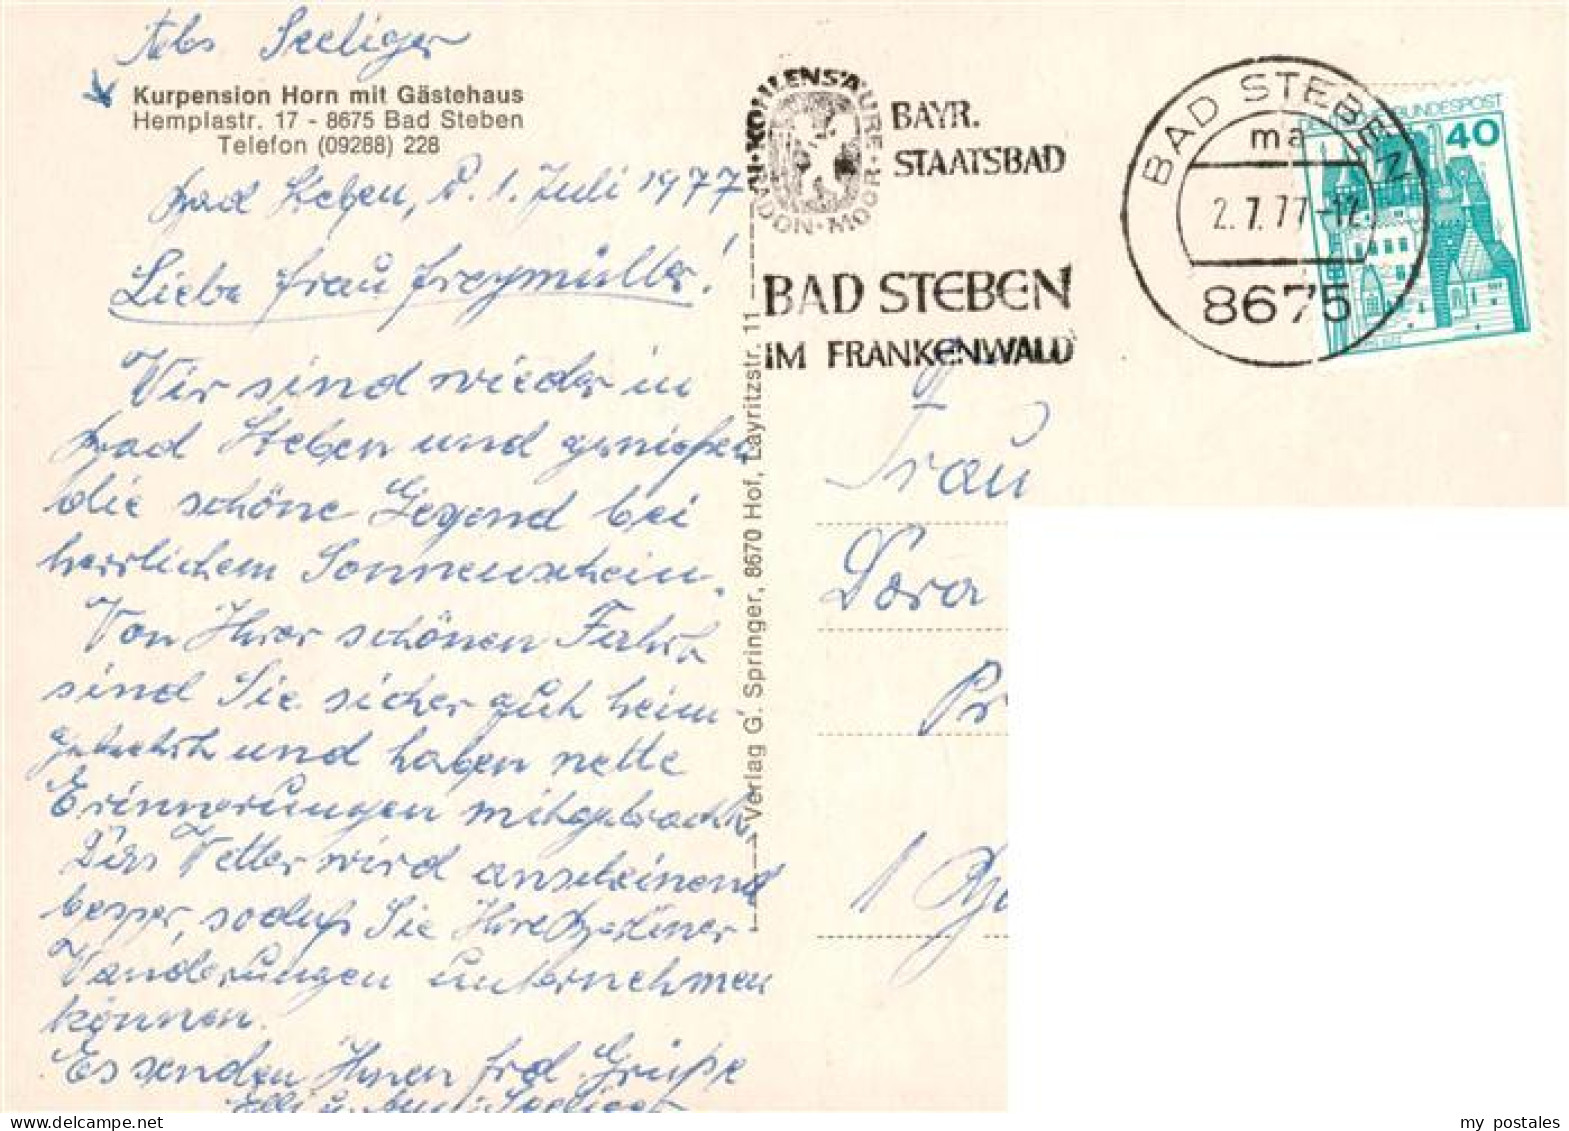 Abs Seeliger
Kurpension Horn mit Gästehaus
Hemplastr. 17 - 8675 Bad Steben
Telefon (09288) 228
Bad Steben, d. 1. Juli 1977
Liebe Frau Freymüller!
Wir sind wieder in
Bad Steben und genießen
die schöne Gegend bei
herrlichem Sonnenschein.
Von Ihrer schönen Fahrt
sind Sie sicher gut heim
gekehrt und haben nette
Erinnerungen mitgebracht.
Das Wetter wird anscheinend
besser, sodaß Sie Ihre Berliner
Wanderungen unternehmen
können.
Es senden Ihnen frdl. Grüße
Elli u. Seeliger
Verlag G. Springer, 8670 Hof, Layritzstr. 11
RADON·MOOR·KOHLENSÄURE
BAYR.
STAATSBAD
BAD STEBEN
IM FRANKENWALD
BAD STEBEN
ma
2.7.77-12
8675
DEUTSCHE BUNDESPOST
40
Frau
Dora
Pr
1 Be
my postales